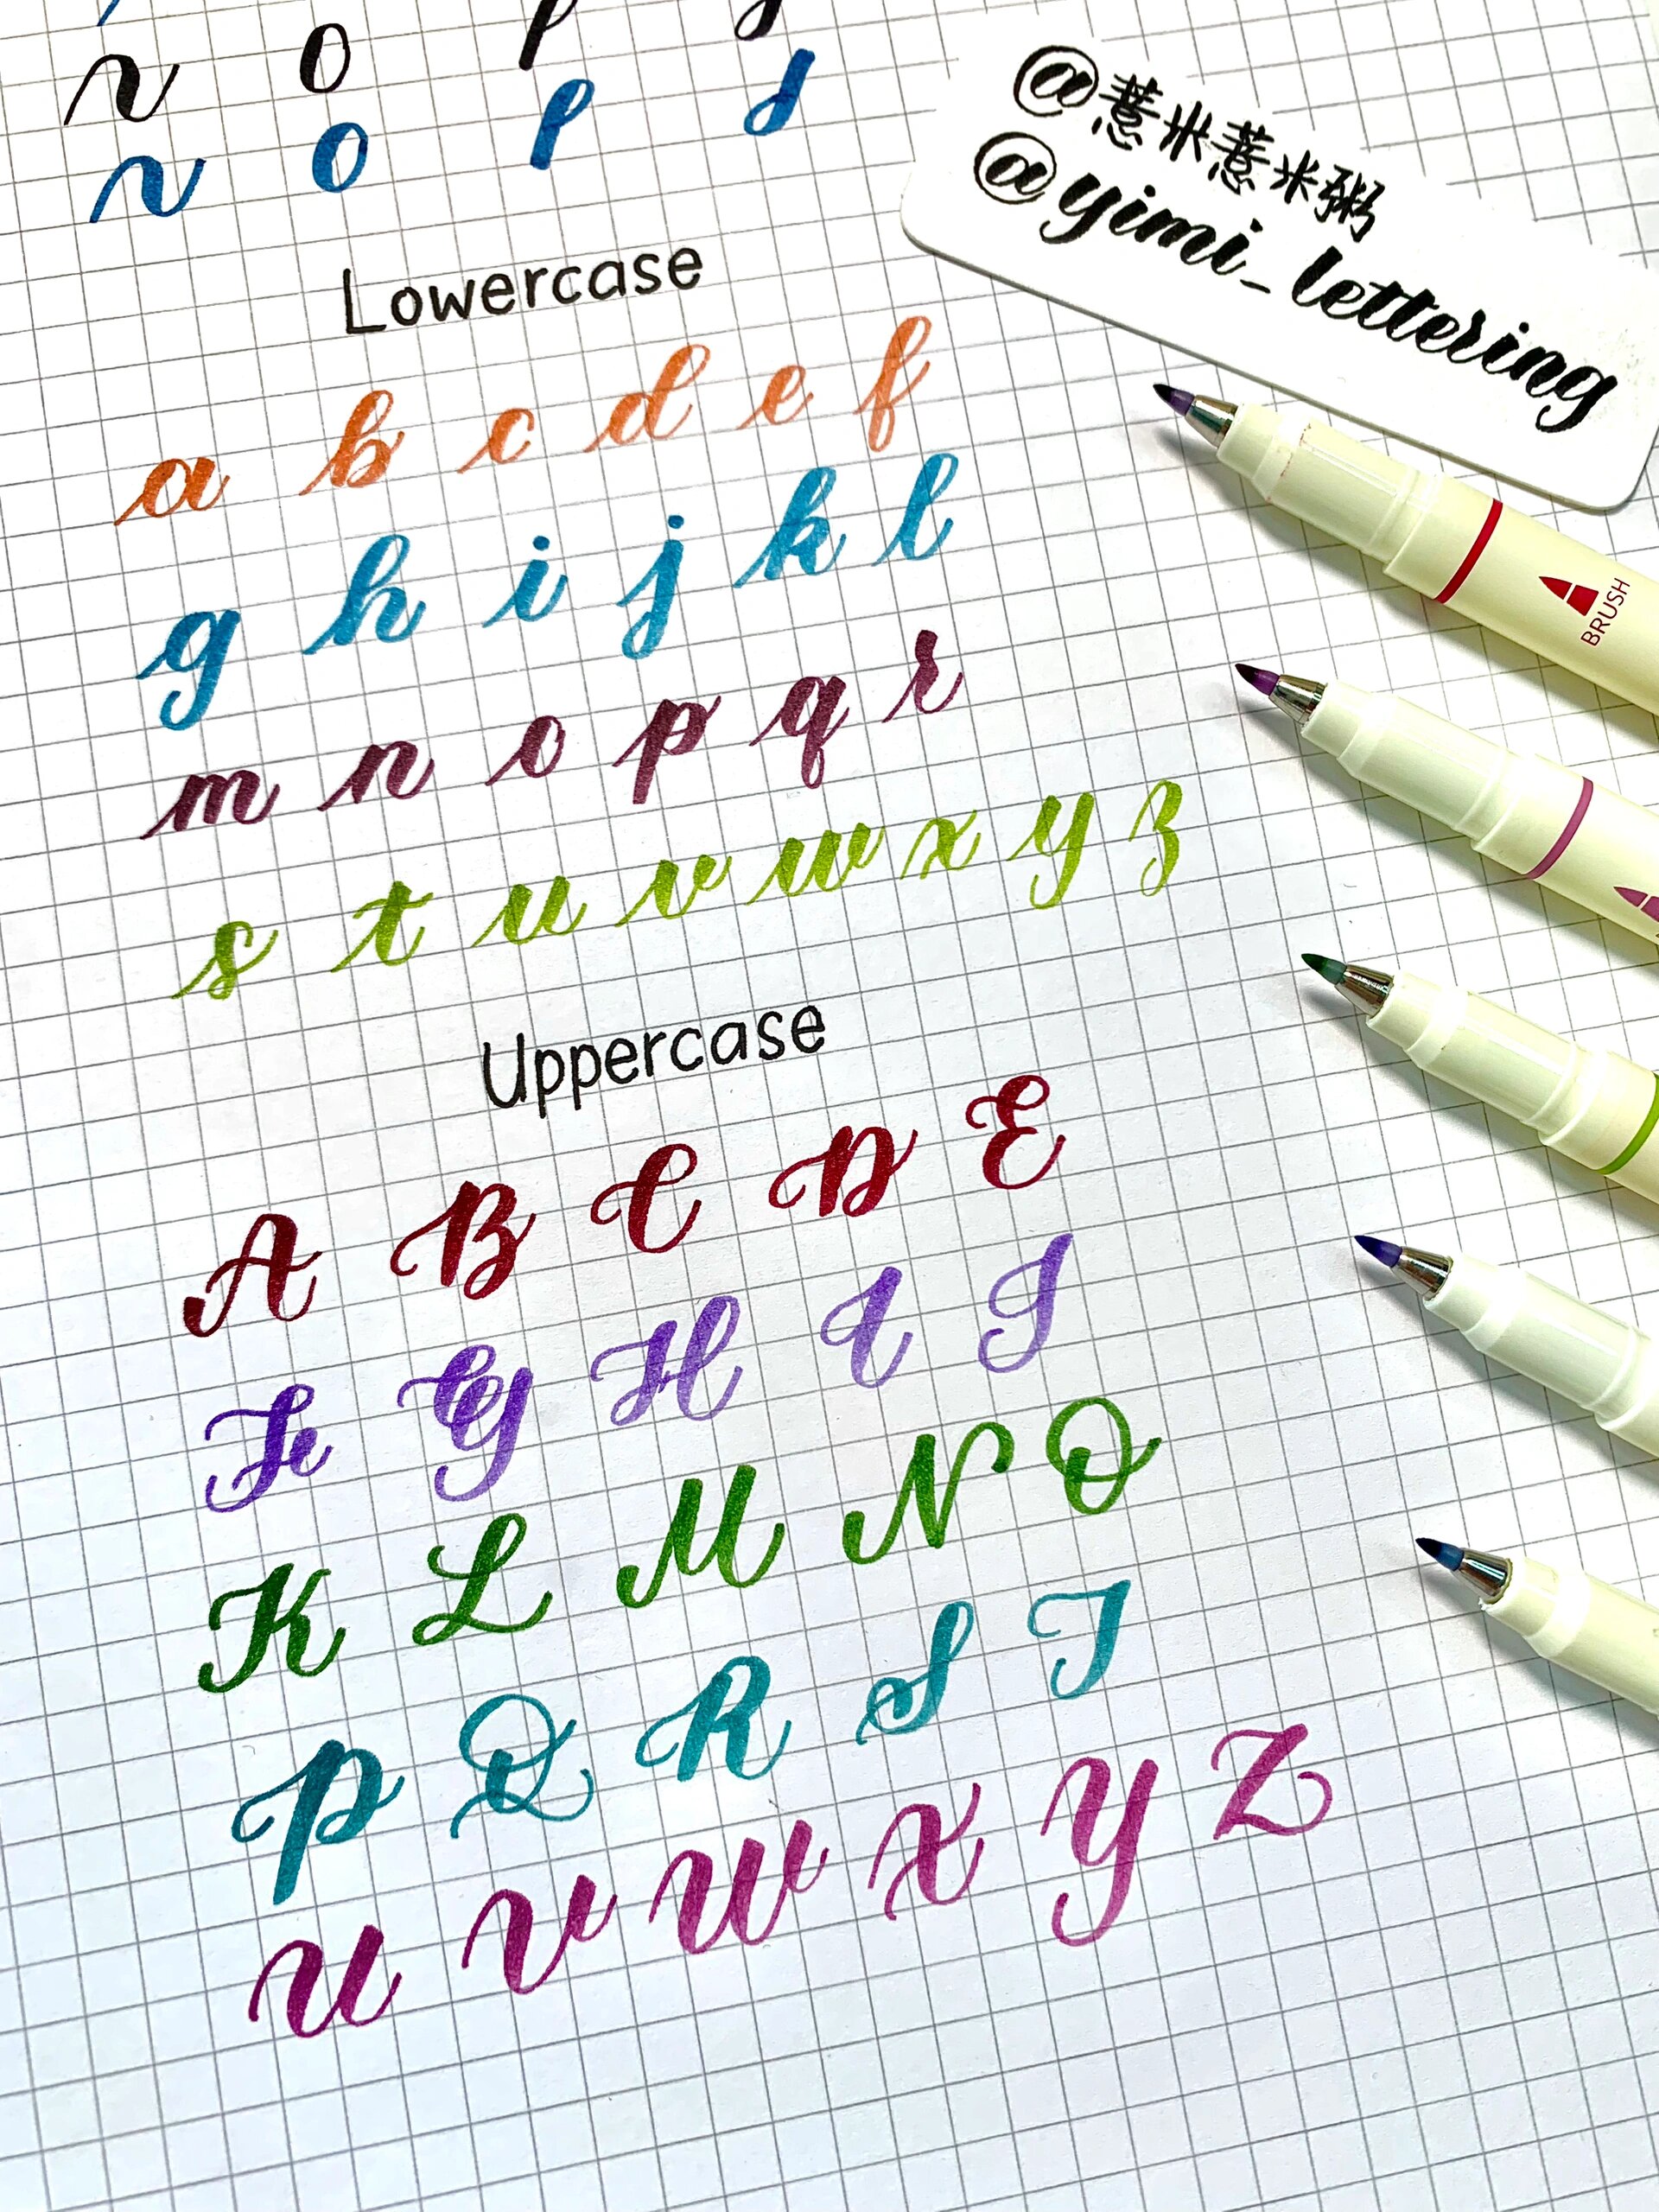 Lowercase
a b c d e f
g h i j k l
m n o p q r
s t u v w x y z
Uppercase
A B C D E
F G H I J
K L M N O
P Q R S T
U V W X Y Z
@薏米薏米粥
@yimi_lettering
BRUSH